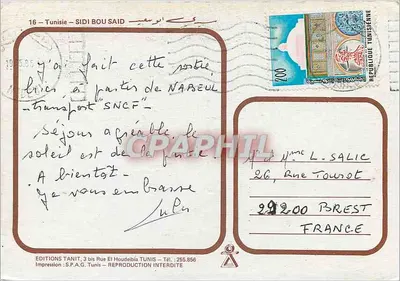 16 - Tunisie - SIDI BOU SAID سيدي أبو سعيد
J'ai fait cette sortie
hier à partir de NABEUL
-transport "SNCF" -
Séjour agréable, le
soleil est de la partie.
A bientôt -
Je vous embrasse
Lulu
200
REPUBLIQUE TUNISIENNE
CPARAMA
Mr Mme L. SALIC
26, Rue Tourot
29200 BREST
FRANCE
EDITIONS TANIT, 3 bis Rue El Houdeibia TUNIS - Tél. : 255.856
Impression : S.P.A.G. Tunis - REPRODUCTION INTERDITE